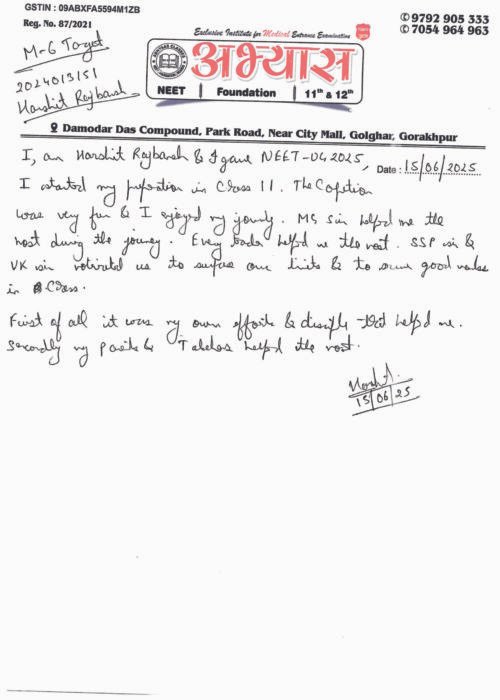 GSTIN : 09ABXFA5594M1ZB
Reg. No. 87/2021
M-6 Target
2024013151
Harshit Rajbansh
Exclusive Institute for Medical Entrance Examination
अभ्यास
NEET | Foundation | 11th & 12th
✆9792 905 333
✆7054 964 963
Damodar Das Compound, Park Road, Near City Mall, Golghar, Gorakhpur
Date : 15/06/2025
I, am Harshit Rajbansh & I gave NEET-UG 2025,
I started my in Class 11. The
was very fun & I enjoyed my journey. MS sir helped me the
most during the journey. Every helped me the most. SSP sir &
VK sir motivated us to our limits & to good
in Class.
First of all it was my own efforts & that helped me.
Secondly my & helped the most.
15/06/25